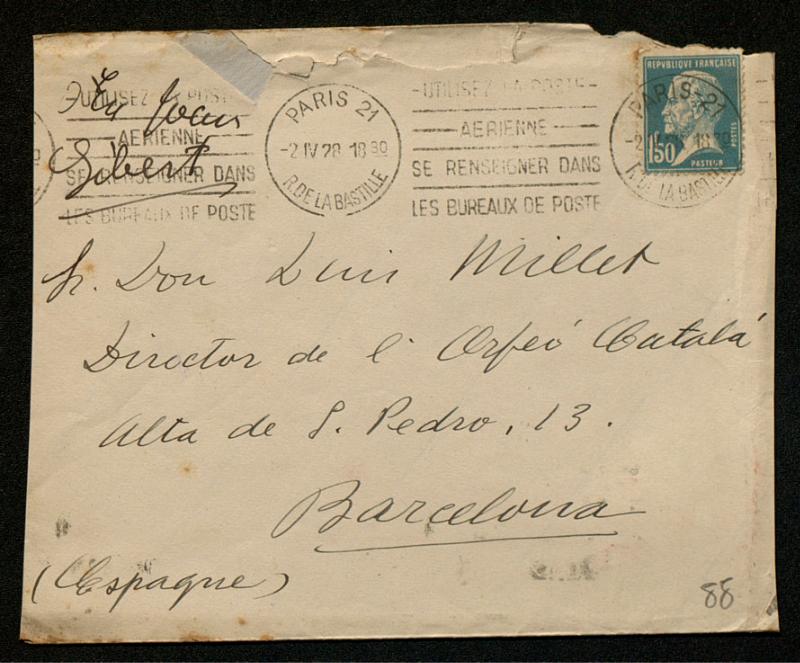 UTILISEZ LA POSTE
AERIENNE
SE RENSEIGNER DANS
LES BUREAUX DE POSTE
Gibert
PARIS 21
-2 IV 28 18 30
R. DE LA BASTILLE
-UTILISEZ LA POSTE-
AERIENNE
SE RENSEIGNER DANS
LES BUREAUX DE POSTE
REPUBLIQUE FRANÇAISE
POSTES
1F50
PASTEUR
PARIS-21
18 30
R. DE LA BASTILLE
Don Luis Millet
Director de l'Orfeó Catalá
Alta de S. Pedro, 13.
Barcelona
(Espagne)
88